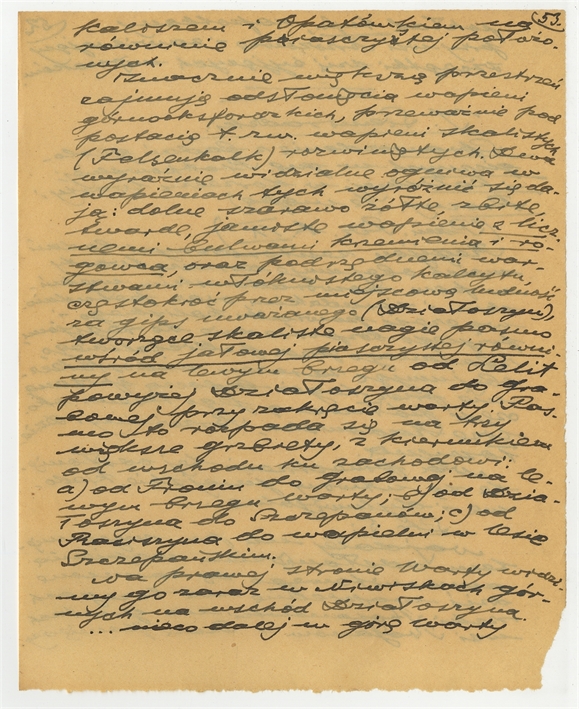 53.
kaloszem i Opatówkiem na
równinie piaszczystej położo-
nych.
Znacznie większą przestrzeń
zajmują odsłonięcia wapieni
górnooksfordzkich, przeważnie pod
postacią t. zw. wapieni skalistych
(Felsenkalk) rozwiniętych. Dwa
wyraźnie widzialne ogniwa w
wapieniach tych wyróżnić się da-
ją: dolne szarawo żółte, zbite,
twarde, jamiste wapienie z licz-
nemi bulwami krzemienia i ro-
gowca, oraz podrzędnemi war-
stwami włóknistego kalcytu,
częstokroć przez miejscową ludność
za gips uważanego (Działoszyn),
tworzące skaliste nagie pasmo
wśród jałowej piaszczystej równi-
ny na lewym brzegu od Lelit
powyżej Działoszyna do Gra-
bowej przy zakręcie warty. Pas-
mo to rozpada się na trzy
większe grzbiety, z kierunkiem
od wschodu ku zachodowi:
a) od do na le-
wym brzegu warty; b) od Dzia-
łoszyna do Szczepanów; c) od
Raciszyna do wapielni w lesie
Szczepańskim.
Na prawej stronie Warty widzi-
my go zaraz w Niwiskach gór-
nych na wschód Działoszyna.
... nieco dalej w górę Warty